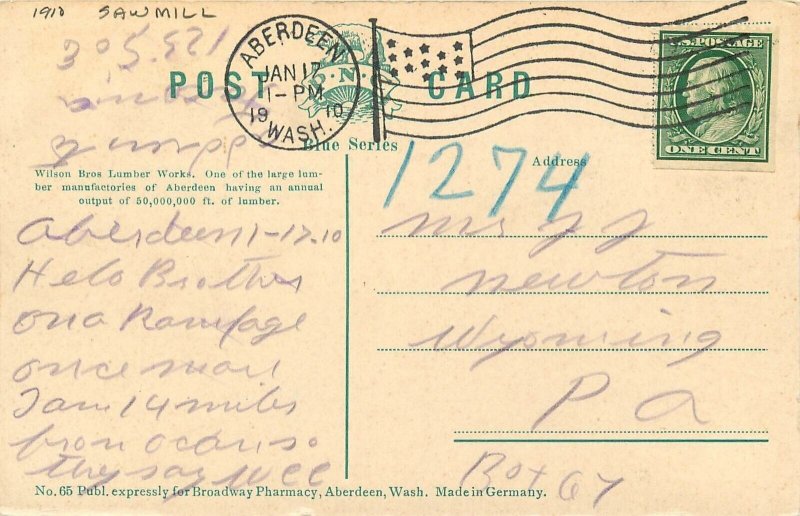 1910 SAWMILL
POST CARD
ABERDEEN
JAN 17
1-PM
19 10
WASH.
U.S. POSTAGE
ONE CENT
Blue Series
1274
Address
Wilson Bros Lumber Works. One of the large lum-
ber manufactories of Aberdeen having an annual
output of 50,000,000 ft. of lumber.
Aberdeen 1-17-10
Helo Brother
on a Rampage
once more
I am 14 miles
from ocan so
they say Well
Mr J J
Newton
Wyoming
P a
Box 67
No. 65 Publ. expressly for Broadway Pharmacy, Aberdeen, Wash. Made in Germany.